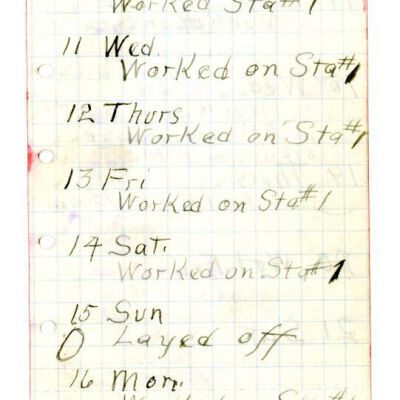 Worked Sta #1
11 Wed.
Worked on Sta #1
12 Thurs
Worked on Sta #1
13 Fri
Worked on Sta #1
14 Sat.
Worked on Sta #1
15 Sun
0 Layed off
16 Mon.